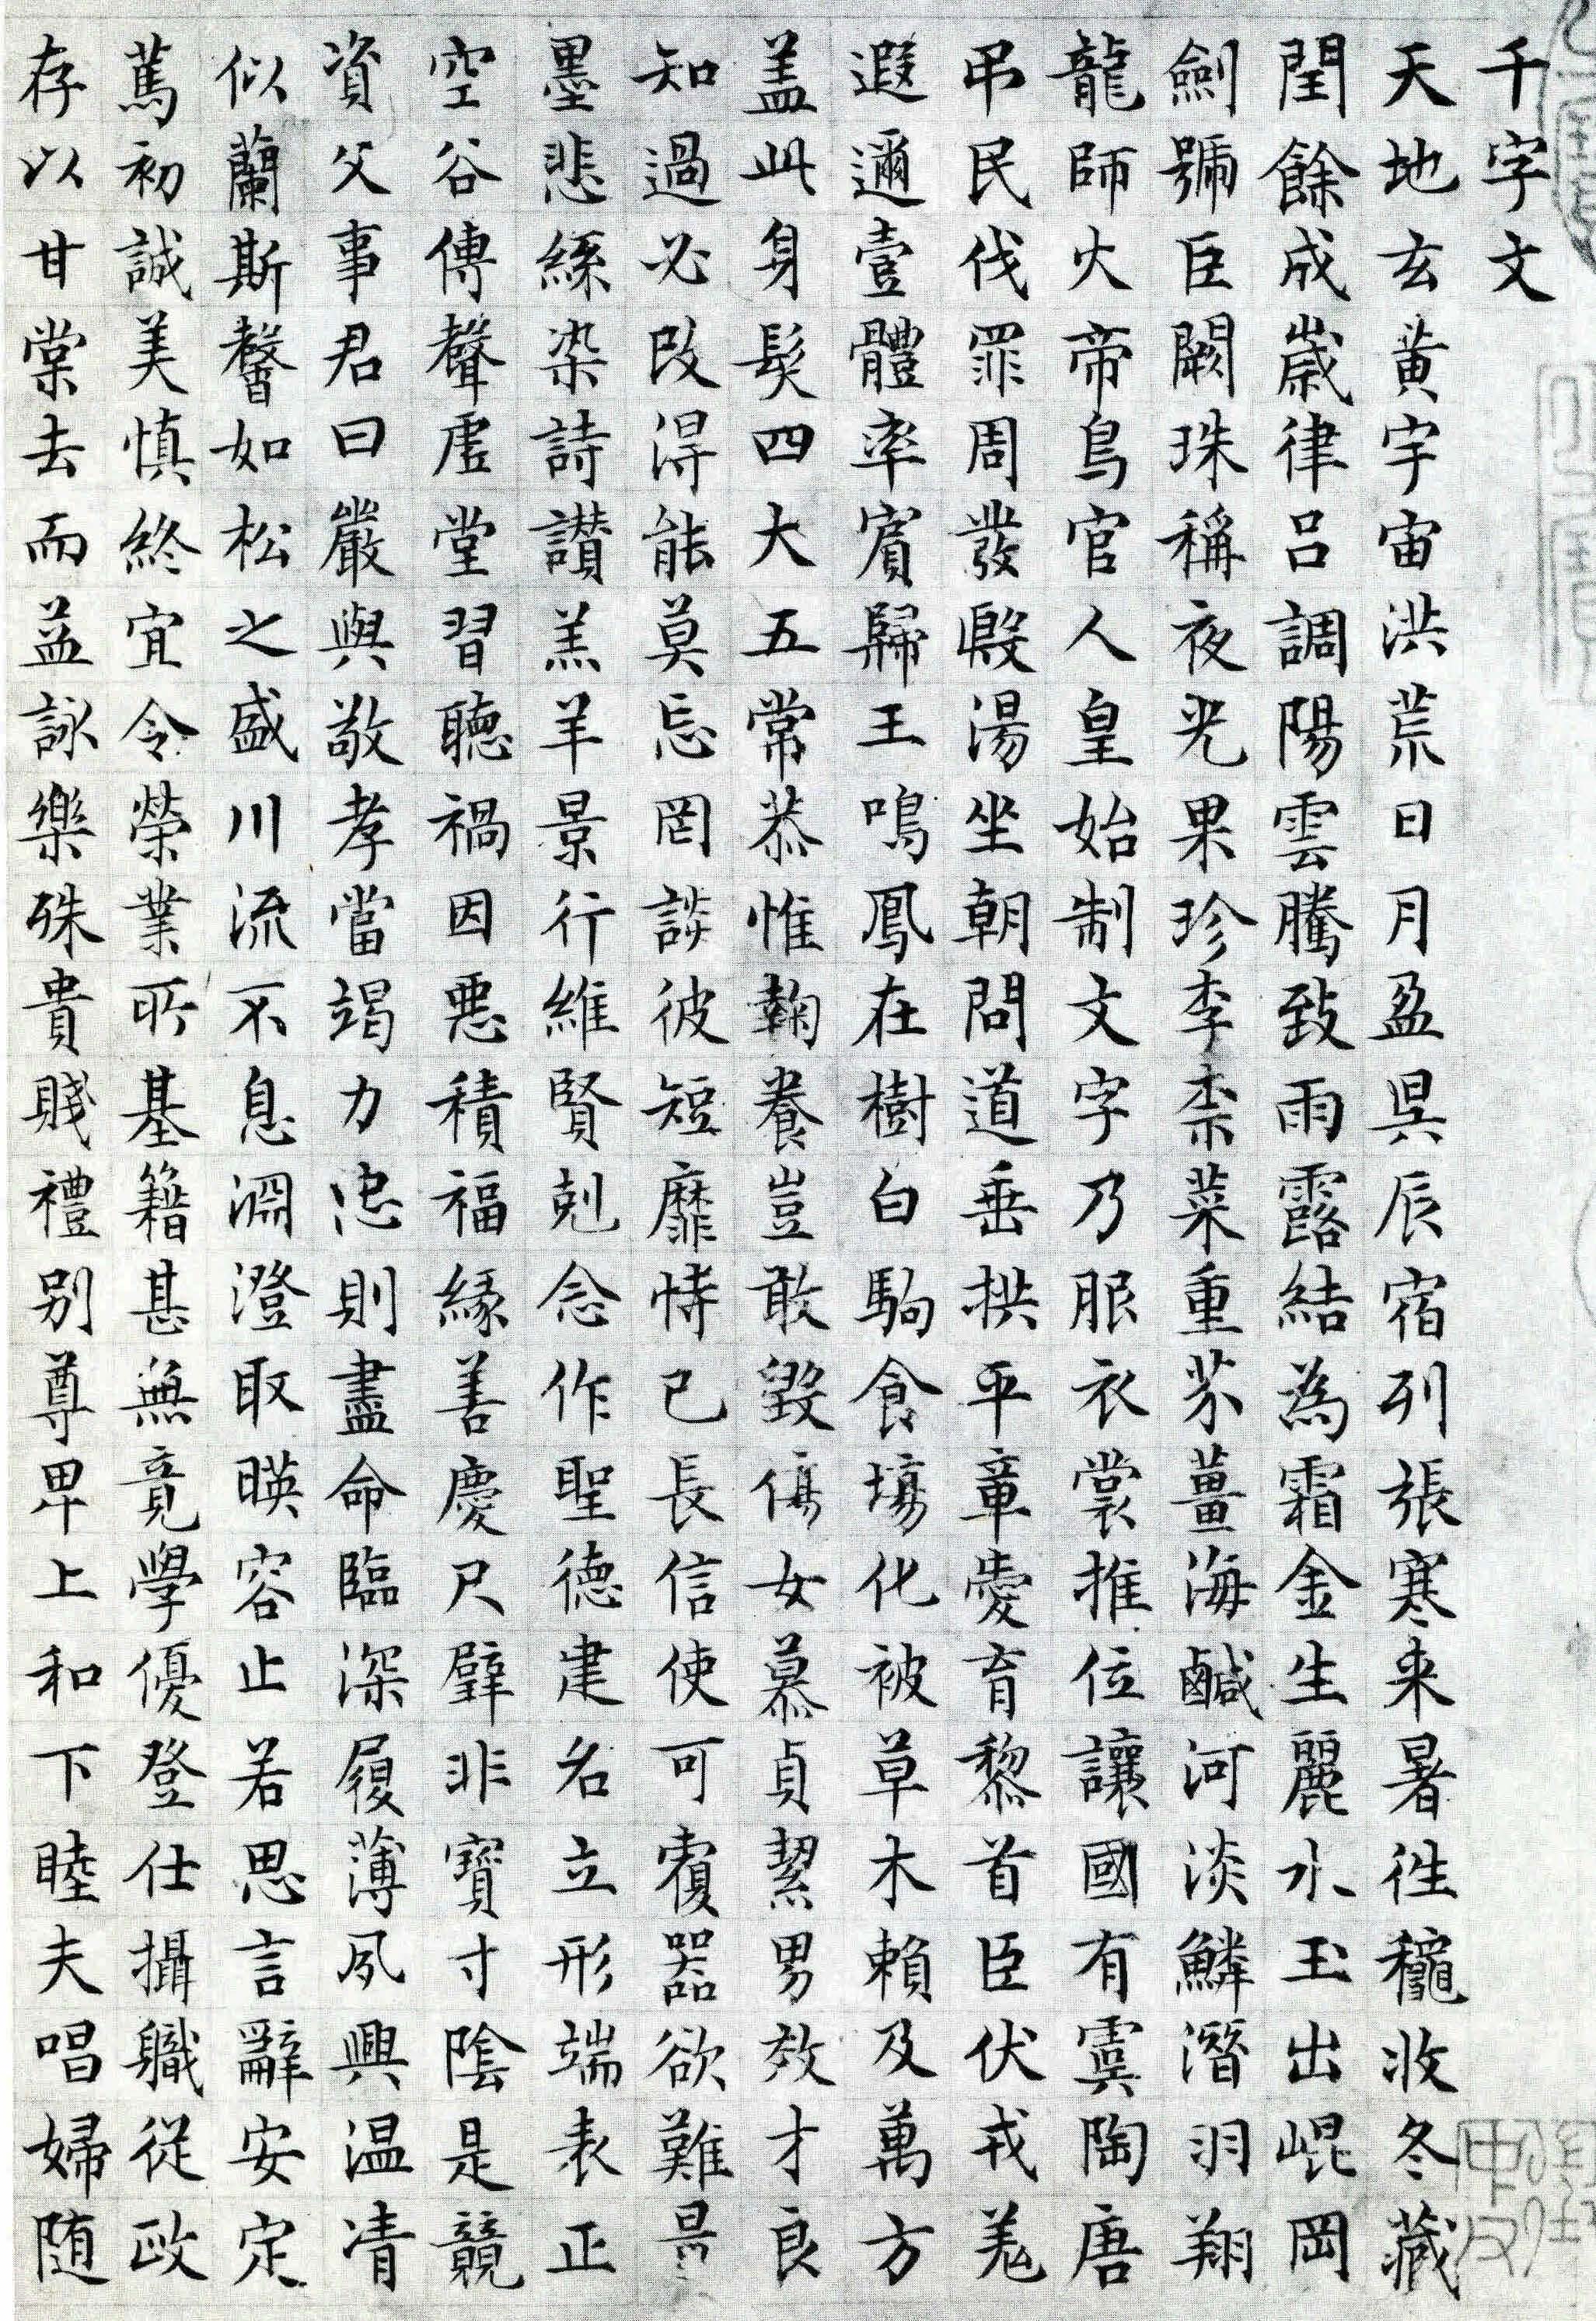 千字文
天地玄黄宇宙洪荒日月盈昃辰宿列張寒来暑往穐收冬藏
閏餘成歲律吕調陽雲騰致雨露結為霜金生麗水玉出崐岡
劍號巨闕珠稱夜光果珍李柰菜重芥薑海鹹河淡鱗潛羽翔
龍師火帝鳥官人皇始制文字乃服衣裳推位讓國有虞陶唐
弔民伐罪周發殷湯坐朝問道垂拱平章愛育黎首臣伏戎羌
遐邇壹體率賓歸王鳴鳳在樹白駒食場化被草木賴及萬方
盖此身髮四大五常恭惟鞠養豈敢毀傷女慕貞絜男效才良
知過必改得能莫忘罔談彼短靡恃己長信使可覆器欲難量
墨悲絲染詩讃羔羊景行維賢剋念作聖德建名立形端表正
空谷傳聲虛堂習聽禍因惡積福緣善慶尺璧非寶寸陰是競
資父事君曰嚴與敬孝當竭力忠則盡命臨深履薄夙興温凊
似蘭斯馨如松之盛川流不息淵澄取暎容止若思言辭安定
篤初誠美慎終宜令榮業所基籍甚無竟學優登仕攝職從政
存以甘棠去而益詠樂殊貴賤禮別尊卑上和下睦夫唱婦随